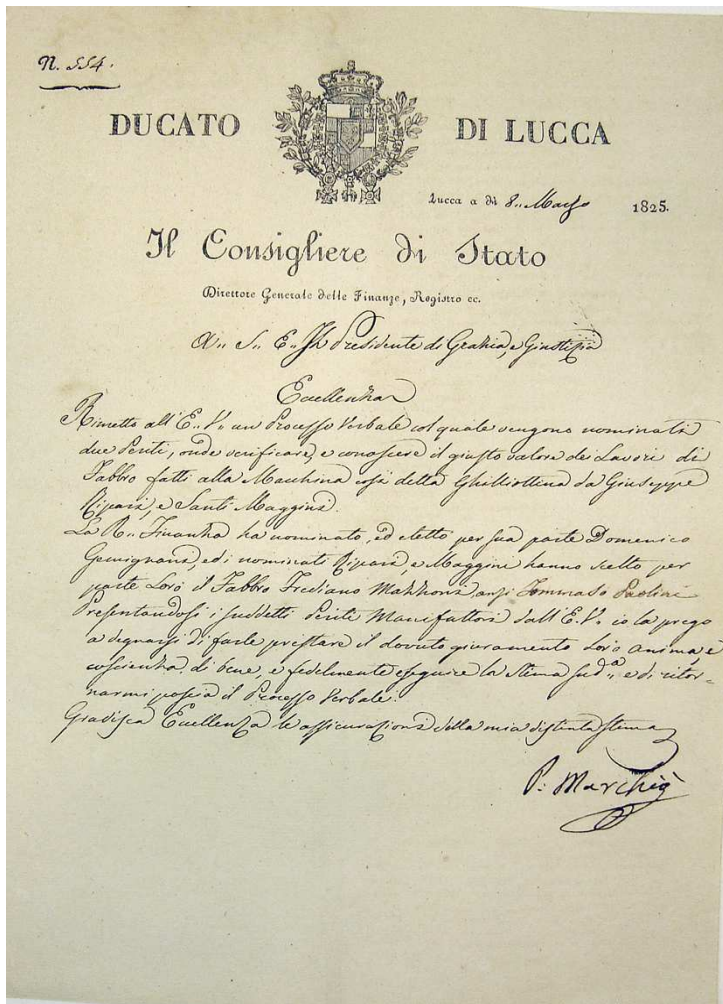 N. 554.
DUCATO DI LUCCA
Lucca a dì 8.. Marzo 1825.
Il Consigliere di Stato
Direttore Generale delle Finanze, Registro ec.
A.. S.. E.. Il Presidente di Grazia, e Giustizia
Eccellenza
Rimetto all'E.. V.. un Processo Verbale col quale vengono nominati
due Periti, onde verificare, e conoscere il giusto valore de Lavori di
Fabbro fatti alla Macchina così detta Ghilliottina da Giuseppe
Ripari, e Santi Maggini.
La R.. Finanza ha nominato, ed eletto per sua parte Domenico
Gemignani, ed i nominati Ripari, e Maggini hanno scelto per
parte Loro il Fabbro Frediano Mazzoni, anzi Tommaso Paolini
Presentandosi i suddetti Periti Manifattori dall'E. V.. io la prego
a degnarsi di farle prestare il dovuto giuramento Loro anima, e
coscienza, di bene, e fedelmente eseguire la stima sud.ª e di ritor-
narmi poscia il Processo Verbale.
Gradisca Eccellenza le assicurazioni della mia distinta stima
P: Marchiò